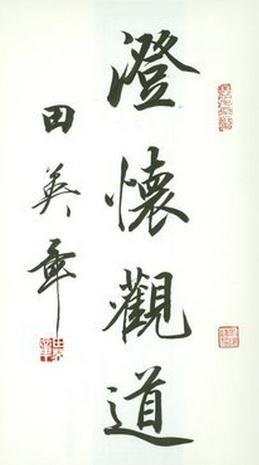 澄懷觀道
田英章